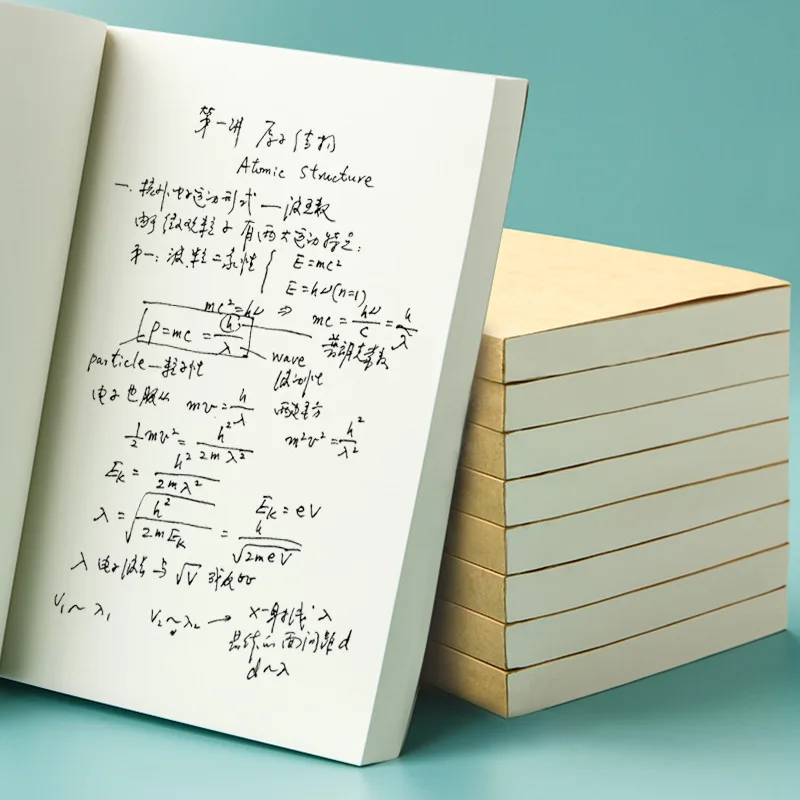 第一讲 原子结构
Atomic Structure
一. 核外电子运动形式 — 波函数
由于微观粒子有两大运动特点:
第一: 波粒二象性 { E=mc²
E=hν(n=1)
mc²=hν ⇒ mc = hν/C = h/λ
P=mc = h/λ 普朗克常数
particle—粒子性 wave
波动性
电子也服从 mv = h/λ 两边平方
½mv² = h²/2mλ² m²v² = h²/λ²
E_K = h²/2mλ²
λ = √(h²/2mE_K) = h/√(2meV) E_K = eV
λ 电子波长与 √V 成反比
V₁~λ₁ V₂~λ₂ → X-射线 λ
晶体的面间距 d
d~λ